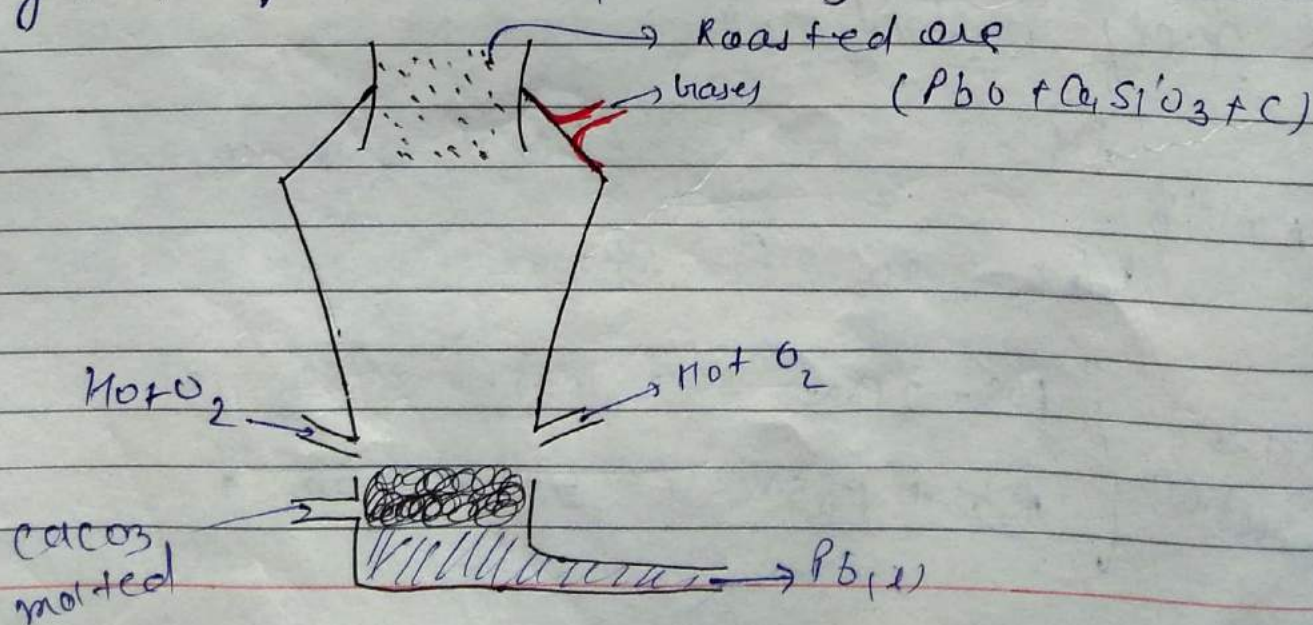 Roasted ore
gases
(PbO + CaSiO3 + C)
Hot O2
Hot O2
CaCO3
molted
Pb(l)